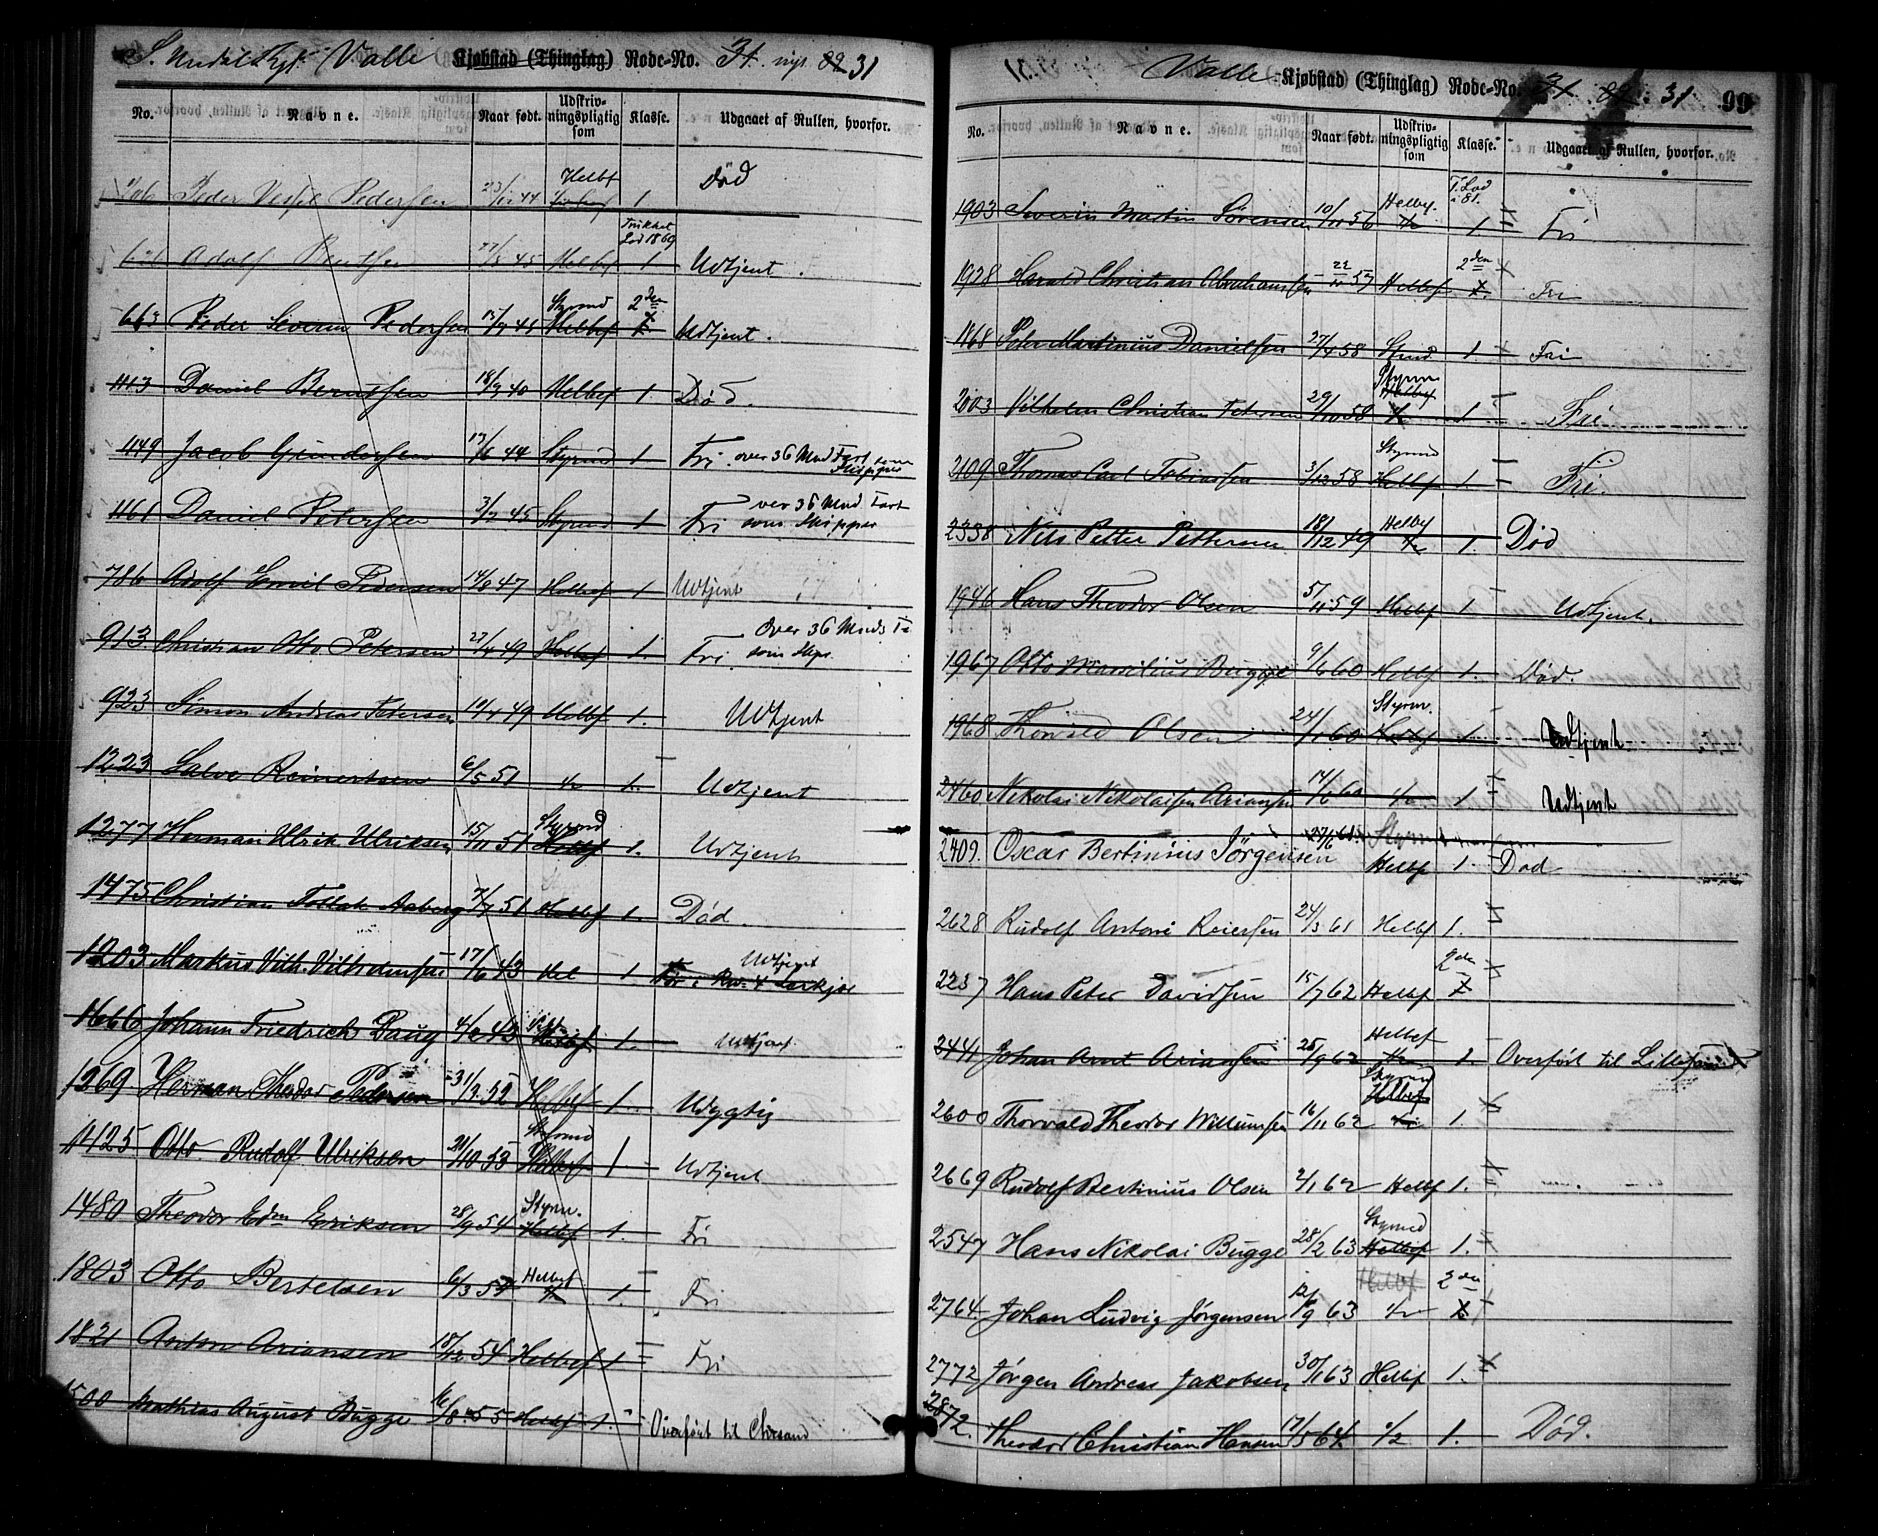 S. Undal Valle Kjøbstad (Thinglag) Rode-No. 31. 82 31
No. Navne. Naar født. Udskrivningspligtig som Klasse. Udgaaet af Rullen, hvorfor.
Peder Pedersen 23/12 44 Helbf 1 Død
Adolf Berntsen 45 Helbf 1 Udtjent.
663 Peder Severin Pedersen Styrmd Helbf 2den Udtjent.
1113 Daniel Berntsen 18/9 40 Helbf 1 Død.
1149 Jacob Gundersen 17/6 44 Styrmd 1 Fri. over 36 Mnd Fart som Skipper
1161 Daniel Petersen 3/2 45 Styrmd 1 Fri over 36 Mnd Fart som Skipper
786 Adolf Emil Pedersen 14/6 47 Helbef 1 Udtjent
913 Christian Otto Petersen 27/4 49 Helbef 1. Fri. Over 36 Mnds Fa som Skip.
923 Simon Andreas Petersen 49 Helbf 1. Udtjent
1223 Salve Reinertsen 6/5 51 1. Udtjent
1277 Herman Ulrik Ulriksen 15/11 51 Styrmd Helbf 1. Udtjent
1475 Christian Tollak Aaberg 7/7 51 Helbf 1. Død.
1203 Markus Vilh. Vilhelmsen 17/6 43 Hel 1 Udtjent
1666 Johann Friedrich Paug 4/2 43 Helbf 1. Udtjent
1269 Herman Theodor Pedersen 31/3 52 Helbef 1. Udygtig
1425 Otto Rudolf Ulriksen 21/10 53 Styrmd Helbef 1 Udtjent
1480 Theodor Edm Eriksen 28/9 54 Styrm. Helbf 1. Fri
1803 Otto Bertelsen 6/3 57 Helbef 1. Fri
1821 Anton Ariansen 18/12 54 Helbef 1 Fri
1500 Mathias August Bugge 16/8 55 Helbf 1. Overført til Chrsand
Valle Kjøbstad (Thinglag) Rode-No. 31. 82. 31 99
No. Navne. Naar født. Udskrivningspligtig som Klasse. Udgaaet af Rullen, hvorfor.
1903 Severin Martin Sörensen 10/11 56 Helbf. 1. Fri
1928 Harald Christian Abrahamsen 22/11 57 Helbf 2den Fri
1868 Peder Martinius Danielsen 27/4 58 Stmd. 1 Fri
2003 Vilhelm Christian Petersen 29/10 58 Styrm Helbf 1. Fri
2109 Thomas Carl Tobiassen 3/12 58 Styrmd Helbf 1. Fri.
2338 Nils Petter Pettersen 18/12 49 Helbf 1. Død
1946 Hans Theodor Olsen 5/11 59 Helbf 1. Udtjent.
1967 Otto Marsilius Bugge 9/6 60 Helbf 1. Død.
1968 Thorvald Olsen 24/1 60 Styrm. Helbf 1 Udtjent
2460 Nikolai Nikolaisen Ariansen 14/6 60 1 Udtjent
2409. Oscar Bertinius Jörgensen 27/6 61 Styrmd Helbf 1. Død
2628 Rudolf Antoni Reiersen 24/3 61 Helbf 1.
2237 Hans Peter Davidsen 15/7 62 Helbf 2den
2441 Johan Arnt Ariansen 25/9 62 Helbef 1. Overført til
2600 Thorvald Theodor Willumsen 16/11 62 Styrmd Helbef 1.
2669 Rudolf Bertinius Olsen 2/1 62 Helbf 1.
2547 Hans Nikolai Bugge 28/2 63 Styrmd Helbef 1.
2764. Johan Ludvig Jörgensen 63 Helbf 2den
2772 Jörgen Andreas Jakobsen 30/1 63 Helbf 1.
2872. Theodor Christian Hansen 17/5 64. 1. Død.